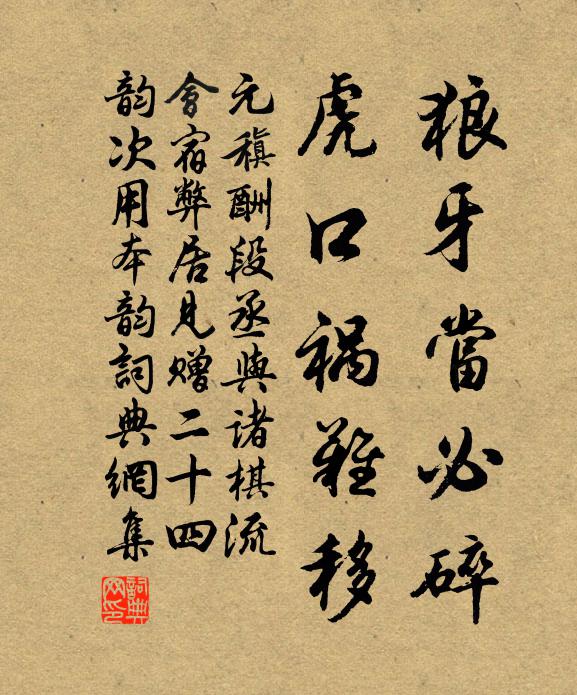 狼牙當必碎
虎口禍難移
元稹酬段丞與諸棋流
會宿弊居見贈二十四
韵次用本韵詞典網集
詞典网印